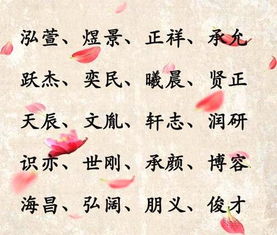 泓萱、煜景、正祥、承允
跃杰、奕民、曦晨、贤正
天辰、文胤、轩志、润研
识亦、世刚、承颜、博容
海昌、弘阔、朋义、俊才